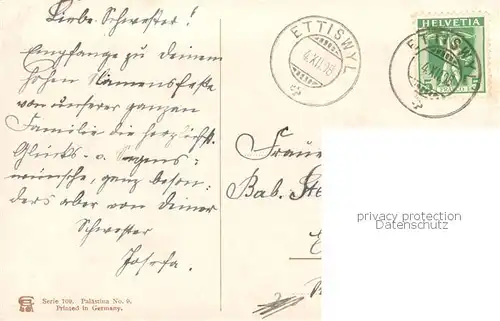 Liebe Schwester!
Empfange zu deinem
hohen Namensfeste
von unserer ganzen
Familie die herzlichst.
Glücks- u. Segens-
wünsche, ganz beson-
ders aber von deiner
Schwester
Josefa.
ETTISWYL
4.XII.08
HELVETIA
ETTISWYL
4.XII.08
Frau
Bab. Ste
privacy protection
DELCAMPE.NET
Serie 109. Palästina No. 9.
Printed in Germany.